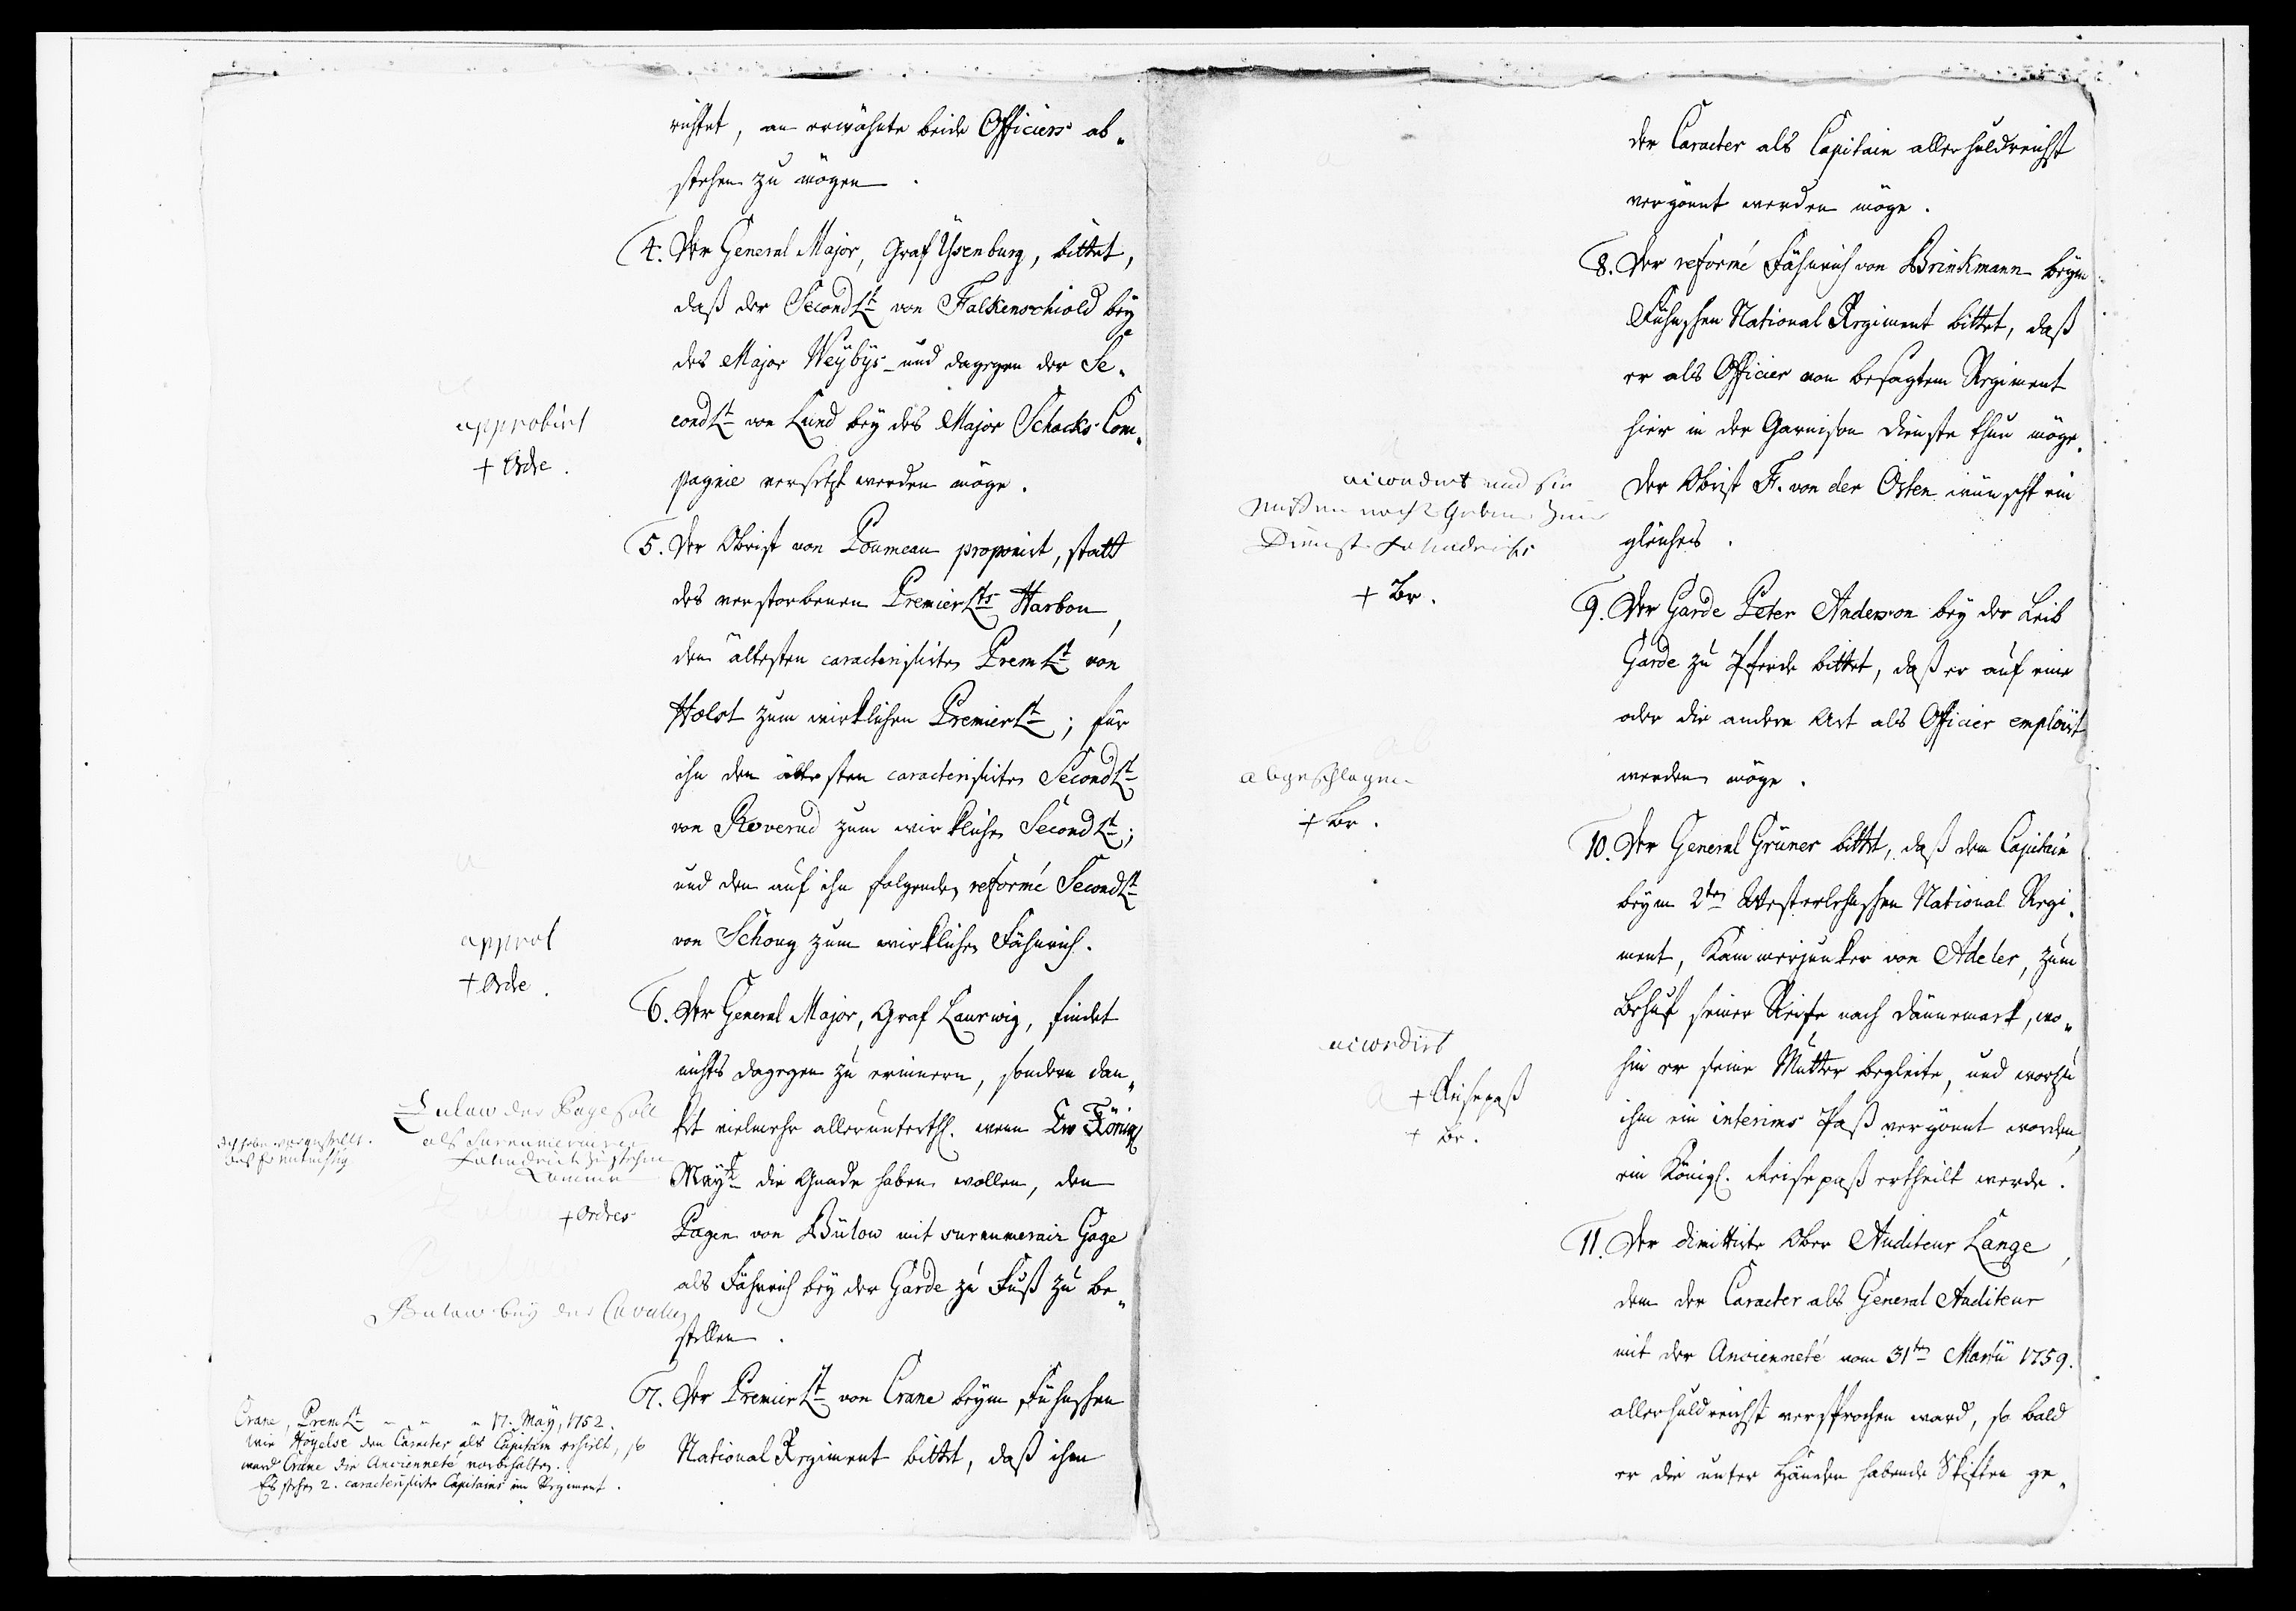 richtet, an erwähnte beide Officiers ab„
stehen zu mögen.
4. Der General Major, Graf Ysenburg, bittet,
daß der SecondLt von Falkenschiold bey
des Major Weybÿs und dagegen der Se„
condLt von Lund bey des Major Schacks Com„
pagnie versetzt werden möge.
approbirt
+ Ordre.
5. Der Obrist von Poumeau proponirt, statt
des verstorbenen PremierLts Harbou,
den ältesten caracterisirten PremLt von
Holst zum wirklichen PremierLt; für
ihn den ältesten caracterisirten SecondLt
von Roverud zum wirklichen SecondLt;
und den auf ihn folgenden reformé SecondLt
von Schoug zum wirklichen Fähnrich.
approb
+ Ordre.
6. Der General Major, Graf Laurwig, findet
nichts dagegen zu erinnern, sondern dan„
ket vielmehr allerunterth. wenn Ew Königl
Mayt die Gnade haben wollen, den
Pagen von Bülow mit surnumerair Gage
als Fähnrich bey der Garde zu Fuß zu be„
stellen.
Bulaw der Page soll
als Surnumerairer
Fahndrich zu stehen
kommen
+ Ordres
Bulaw bey der Cavallerie
7. Der PremierLt von Crane beym Fühnschen
National Regiment bittet, daß ihm
Crane, PremLt „ „ „ 17. May, 1752.
wie Höyelse den Caracter als Capitain erhielt, so
ward Crane die Ancienneté vorbehalten.
Es stehen 2. caracterisirte Capitains im Regiment.
der Caracter als Capitain allerhuldreichst
vergönnt werden möge.
8. Der reformé Fähnrich von Brinkmann beym
Fühnschen National Regiment bittet, daß
er als Officier von besagtem Regiment
hier in der Garnison Dienste thun möge.
Der Obrist F. von der Osten wünscht ein
gleiches.
accordirt und sie
müssen noch 2 geben zum
Dienst Fahndrichs
+ Br.
9. Der Garde Peter Anderson bey der Leib
Garde zu Pferde bittet, daß er auf eine
oder die andere Art als Officier employirt
werden möge.
abgeschlagen
+ Br.
10. Der General Grüner bittet, daß dem Capitain
beym 2ten Westerlehnschen National Regi„
ment, Kammerjunker von Adeler, zum
Behuf seiner Reise nach Dännemark, wo„
hin er seine Mutter begleite, und worzu
ihm ein interims Paß vergönnt worden,
ein Königl. Reisepaß ertheilt werde.
accordirt
+ Reisepaß
+ Br.
11. Der dimittirte Ober Auditeur Lange,
dem der Caracter als General Auditeur
mit der Ancienneté vom 31ten Martii 1759.
allerhuldreichst versprochen ward, so bald
er die unter Händen habende Skiften ge„